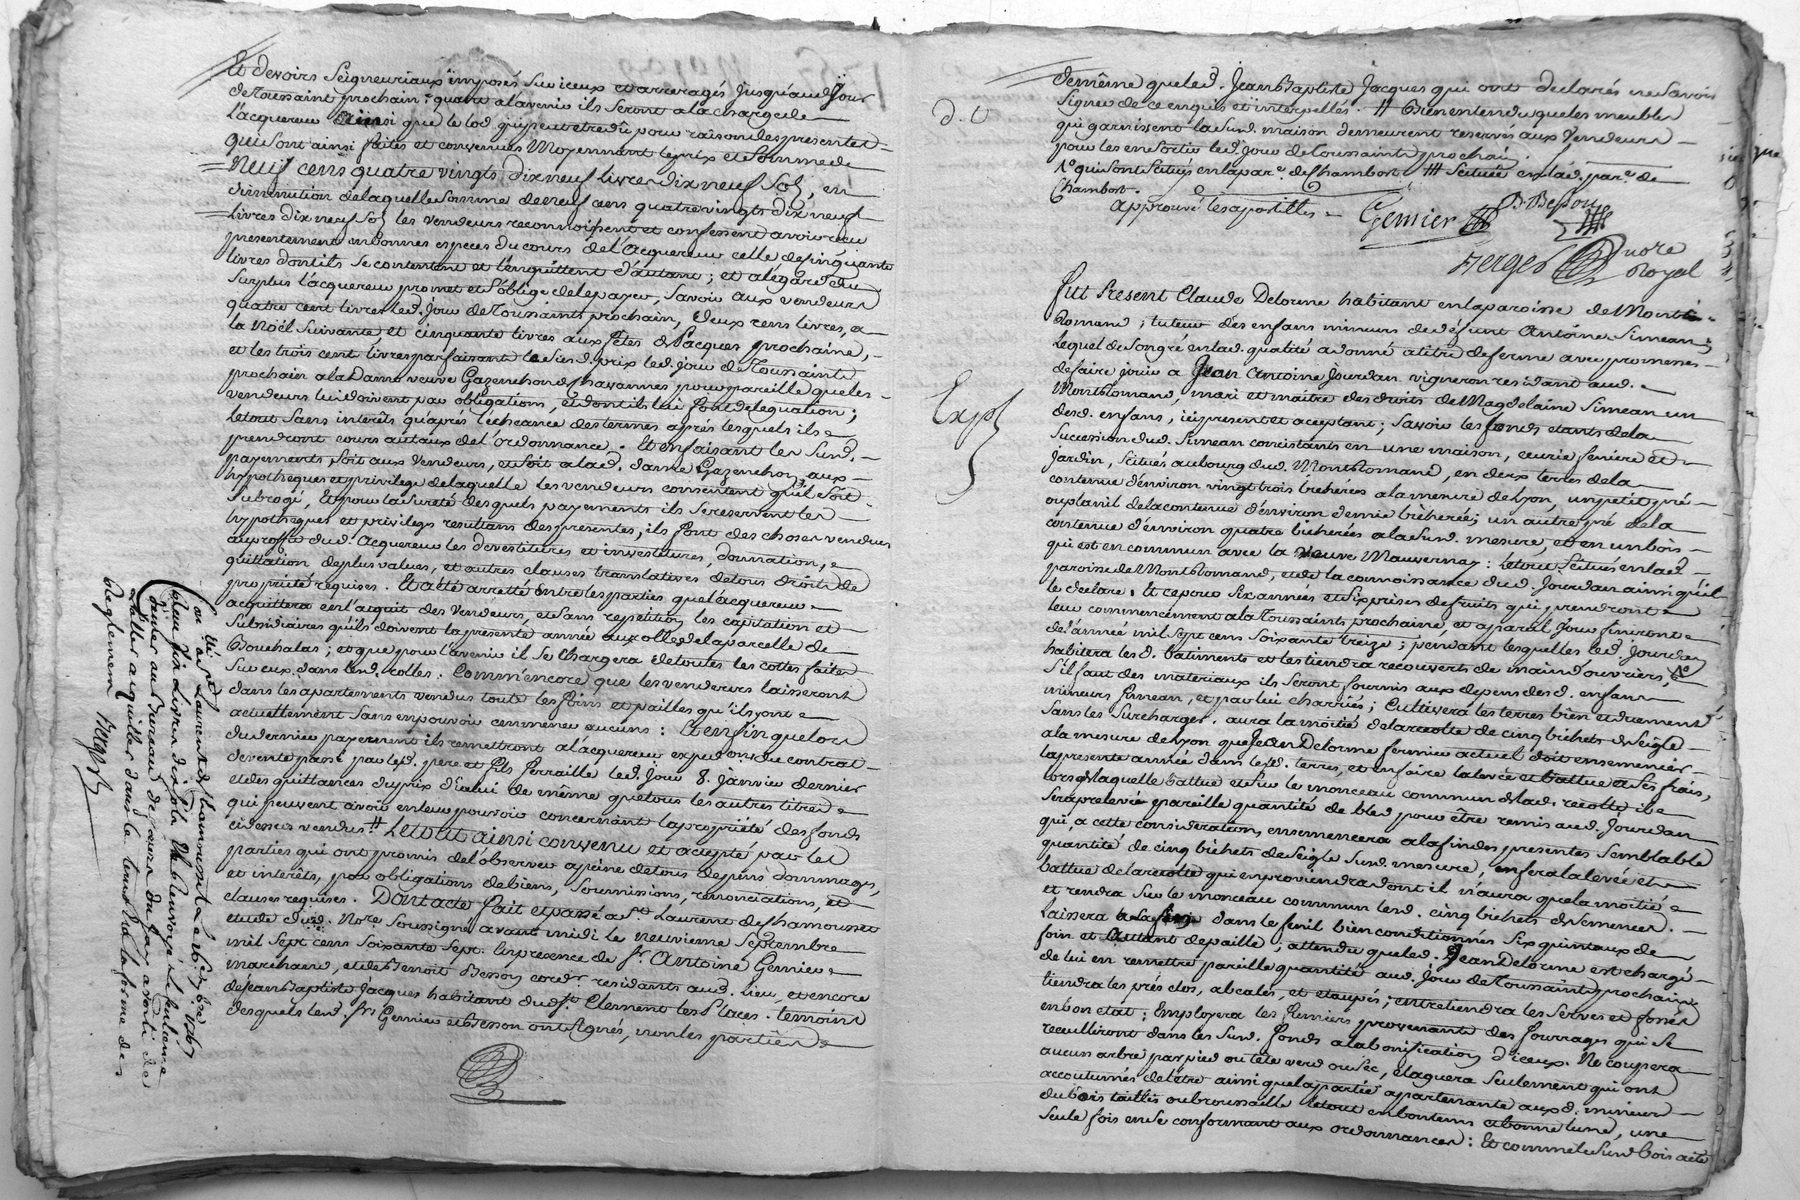 Et devoirs Seigneuriaux imposés sur iceux et arreragés jusqu'aud. jour
de Toussaint prochain; quant a lavenir ils seront a la charge de
l'acquereur ainsi que le lod qui peut etre dû pour raison des presentes
qui sont ainsi faites et convenues Moyennant le prix et Somme de
Neuf cens quatre vingts dix neuf livres dix neuf Sols, en
diminution de laquelle Somme de neuf cens quatre vingts dix neuf
livres dix neuf Sols les vendeurs reconnoissent et confessent avoir reçu
presentement en bonnes especes du cours de l'acquereur celle de cinquante
livres dont ils se contentent et l'en quittent d'autant; et a légard du
Surplus l'acquereur promet et S'oblige de le payer, Savoir aux vendeurs
quatre cent livres led. Jour de Toussaints prochain, deux cens livres, a
la Noël Suivante, et cinquante livres aux fêtes de Pacques prochaine,
et les trois cent livres parfaisant le Susd. prix led. jour de Toussaints
prochain a la Dame veuve Gazenchon de Chavannes pour pareille que les
vendeurs lui doivent par obligations, et dont ils lui font delegation;
le tout Sans interêts qu'aprés l'échéance des termes aprés lesquels ils
prendront cours au taux de l'ordonnance. Et en faisant les Susd.
payements, Soit aux vendeurs, et Soit a lad. dame Gazenchon, aux
hypotheques et privilege de laquelle les vendeurs consentent qu'il Soit
Subrogé, Et pour la Sureté desquels payements ils se reservent les
hypotheques et privilegs resultans des presentes, ils font des choses vendues
au profit dud. acquereur les devestitures et investitures, donnation,
quittation de plus values, et autres clauses translatives de tous droits de
propriété requises. Et a été arretté entre les parties que l'acquereur
acquittera en l'acquit des vendeurs, et Sans repetition les capitation et
Subsidiaires qu'ils doivent la presente année aux olles de la parcelle de
Bouchalas; et que pour l'avenir il se chargera de toutes les cottes faites
Sur eux dans lesd. rolles. Comm'encore que les vendeurs laisseront
dans les apartements vendus toute les foins et pailles qu'ils y ont
actuellement Sans en pouvoir emmener aucuns: Et enfin que lors
du dernier payement ils remettront a lacquereur expedon. du contrat
de vente passé par les d. pere et fils Ferraille led. jour 8. janvier dernier
et des quittances du prix d'icelui de même que tous les autres titres
qui peuvent avoir en leur pouvoir concernant la propriété des fonds
ci dessus vendus.# Le tout ainsi convenu et accepté par les
parties qui ont promis de l'observer a peine de tous depens dommages,
et interêts, par obligations de biens, Soumissions, renonciations, et
clauses requises. Dont acte fait et passé a St. Laurent de Chamousset
etude dud. Nore Soussigné avant midi le neuvieme Septembre
mil Sept cens Soixante Sept. En presence de Sr. Antoine Gemier
marchand, et de Benoit Besson cordr. residants aud. lieu, et encore
de Jean Baptiste Jacques habitant dud. St. Clement les Places. temoins
desquels lesd. Srs. Gemier et Besson ont Signés, non les parties
Con. et insé a St Laurent de Chamousset le 16. 7bre 1767
reçu dix livres dix sols Sauf le renvoye le centieme
denier au Bureau de avoir du Gar avertir de
à acquitter dans le tems et la forme des
Reglement Berger
de même que led. Jean Baptiste Jacques qui ont declarés ne Savoir
Signer de ce enquis et interpellés. # Bien entendu que les meubles
d. U
qui garnissent la Susd. maison demeurent reservés aux vendeurs
pour les en Sortir led. Jour de Toussaints prochain.
1º qui Sont Scitués en la parr. de Chambost ## Scituée en lad. parr. de
Chambost.
approuvé les apostilles
Gemier B Besson
Berger Nore Royal
Expé
Fut Present Claude Delorme habitant en la paroisse de Mont
Romand; tuteur des enfans mineurs de défunt Antoine Simean;
Lequel de Son gré en lad. qualité a donné a titre de ferme avec promesse
de faire jouir a Jean Antoine Jourdan vigneron residant aud.
MontRomand, mari et maitre des droits de Magdelaine Simean un
desd. enfans, ici present et aceptant; Savoir les fonds etants de la
Succession dud. Simean consistants en une maison, ecurie feniere et
Jardin, Scitués au bourg dud. MontRomand, en deux terres de la
contenue d'environ vingt trois bicherées a la mesure de Lyon, un petit pré
ou planil de la contenue d'environ demie bicherée; un autre pré de la
contenue d'environ quatre bicherées a la Susd. mesure, et en un bois
qui est en commun avec la veuve Mauvernay: le tout Scitués en lad.
paroisse de MontRomand, et de la connoissance dud. Jourdan ainsi qu'il
le declare. Et ce pour Six années et Six prises de fruits qui prendront
leur commencement a la Toussaints prochaine, et a pareil Jour finiront
de l'année mil Sept cens Soixante treize; pendant lesquelles led. Jourdan
habitera lesd. batiments et les tiendra recouverts de maind'ouvriers,
S'il faut des materiaux ils Seront fournis aux depens desd. enfans
mineurs Simean, et par lui charriés; Cultivera les terres bien et duement
Sans les Surcharger. aura la moitié de la recolte de cinq bichets de Seigle
a la mesure de Lyon que Jean Delorme fermier actuel doit ensemencer
la presente année dans lesd. terres, et en faire la levée et battue a Ses frais,
lors de laquelle battue et Sur le monceau commun de lad. recolte il
Sera prelevé pareille quantité de bled pour être remis aud. Jourdan
qui, a cette consideration, ensemencera a la fin des presentes Semblable
quantité de cinq bichets de Seigle Susd. mesure, en fera la levée et
battue de la recolte qui en proviendra dont il n'aura que la moitié
et rendra Sur le monceau commun lesd. cinq bichets de Semence.
Laissera a la fin dans le fenil bien conditionnés Six quintaux de
foin et autant de paille; attendu que led. Jean Delorme est chargé
de lui en remettre pareille quantité aud. Jour de Toussaint prochain
tiendra les prés clos, abeales, et etaupés; entretiendra les Serves et fossés
en bon etat; Employera les fumiers provenants des fourrages qui Se
recueilliront dans les Susd. fonds a la bonification d'iceux. Ne coupera
aucun arbre par pied ou tête verd ou Sec, elaguera Seulement qui ont
accoutumés de l'être ainsi que la partie appartenante auxd. mineurs
du bois taillis ou broussaille le tout en bon tems et bonne lune, une
Seule fois en Se conformant aux ordonnances: Et comme le Susd. bois a été